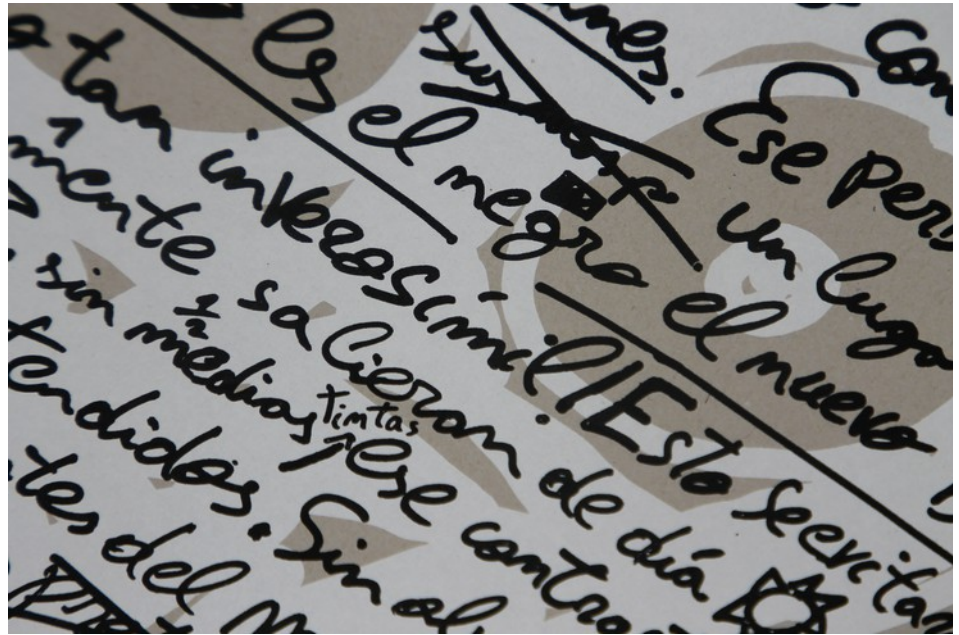 com
Ese pers
sus
un luga
es el negro el nuevo
tan inverosímil! Esto
mente saCieran de día
sin medias tintas ese contro
tendidos. Sin al
tes del M